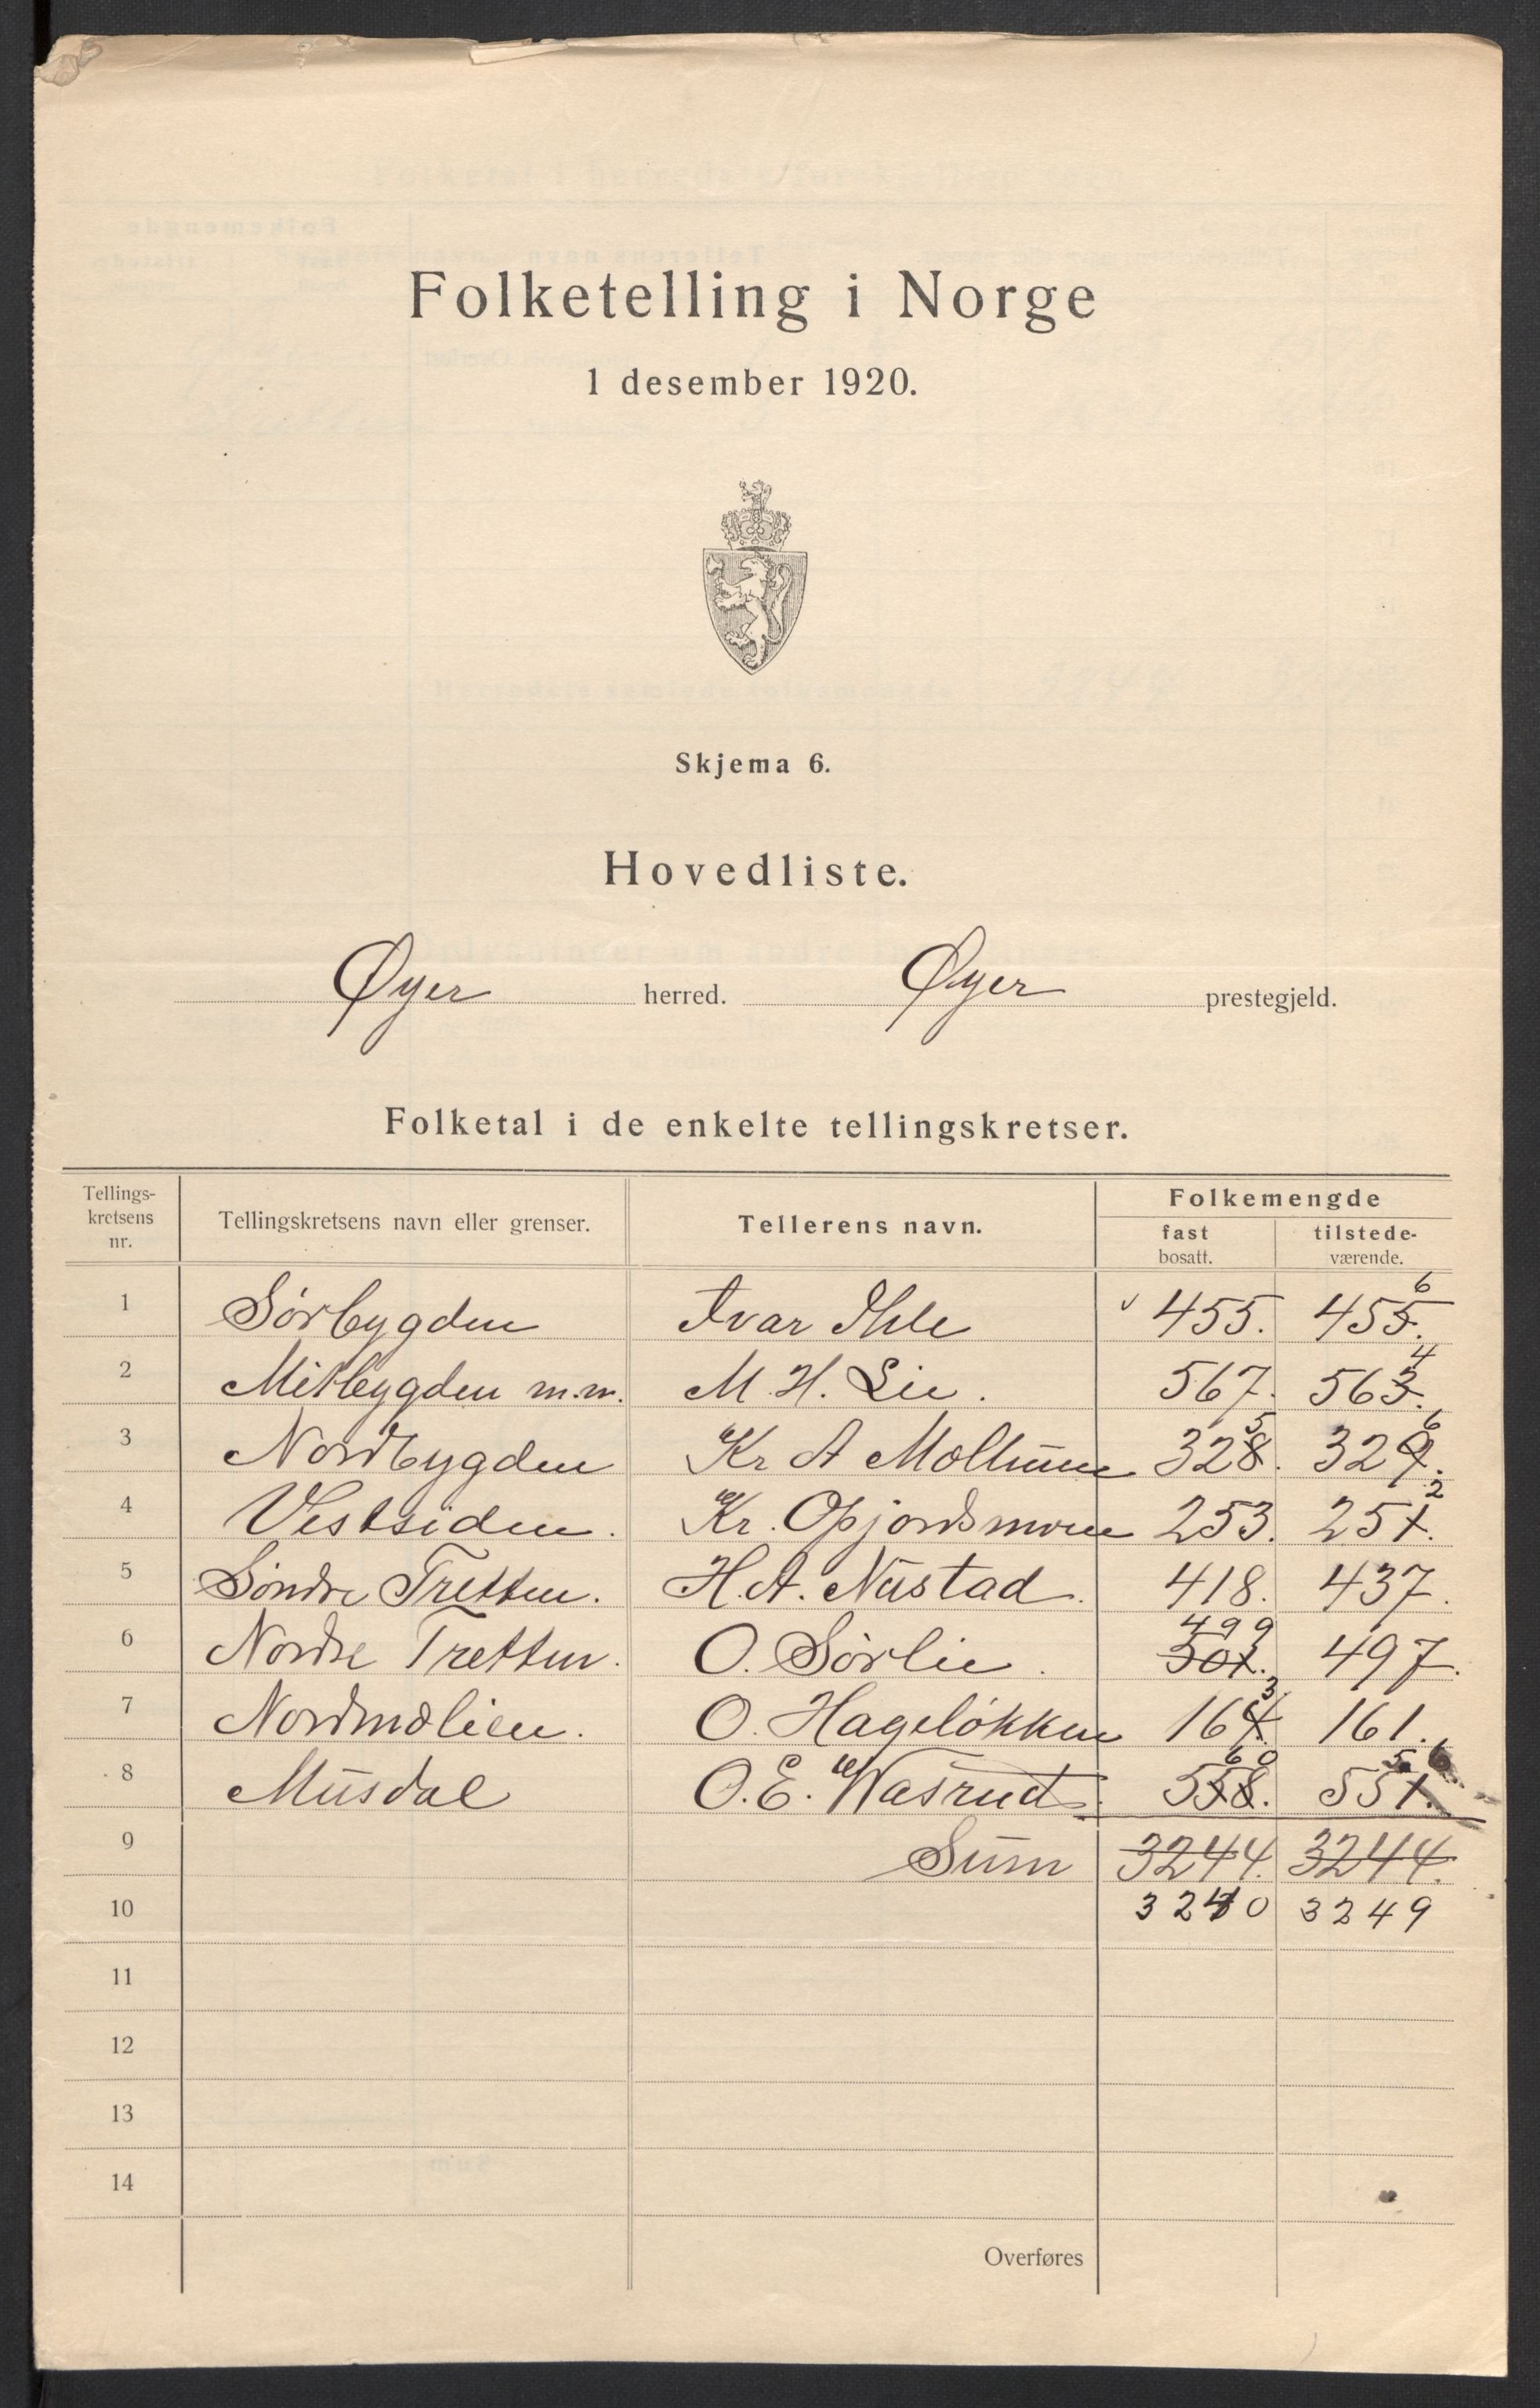 Folketelling i Norge
1 desember 1920.
Skjema 6.
Hovedliste.
Øyer herred. Øyer prestegjeld.
Folketal i de enkelte tellingskretser.
Tellings-
kretsens
nr.
Tellingskretsens navn eller grenser.
Tellerens navn.
Folkemengde
fast
bosatt.
tilstede-
værende.
1 Sørbygden Ivar Ihle 455. 455. 6
2 Mitbygden m.m. M. H. Lie. 567. 563. 4
3 Nordbygden Kr A 328. 5 329. 6
4 Vestsiden. Kr. Opjordsmoen 253. 251. 2
5 Søndre Tretten. H. A. Nustad. 418. 437.
6 Nordre Tretten. O. Sørlie. 501. 499 497.
7 Nordmolien. O. Hageløkken 164. 3 161.
8 Musdal O. E. Wasrud. 558. 60 551. 56
9 Sum 3244. 3244.
10 3240 3249
11
12
13
14
Overføres